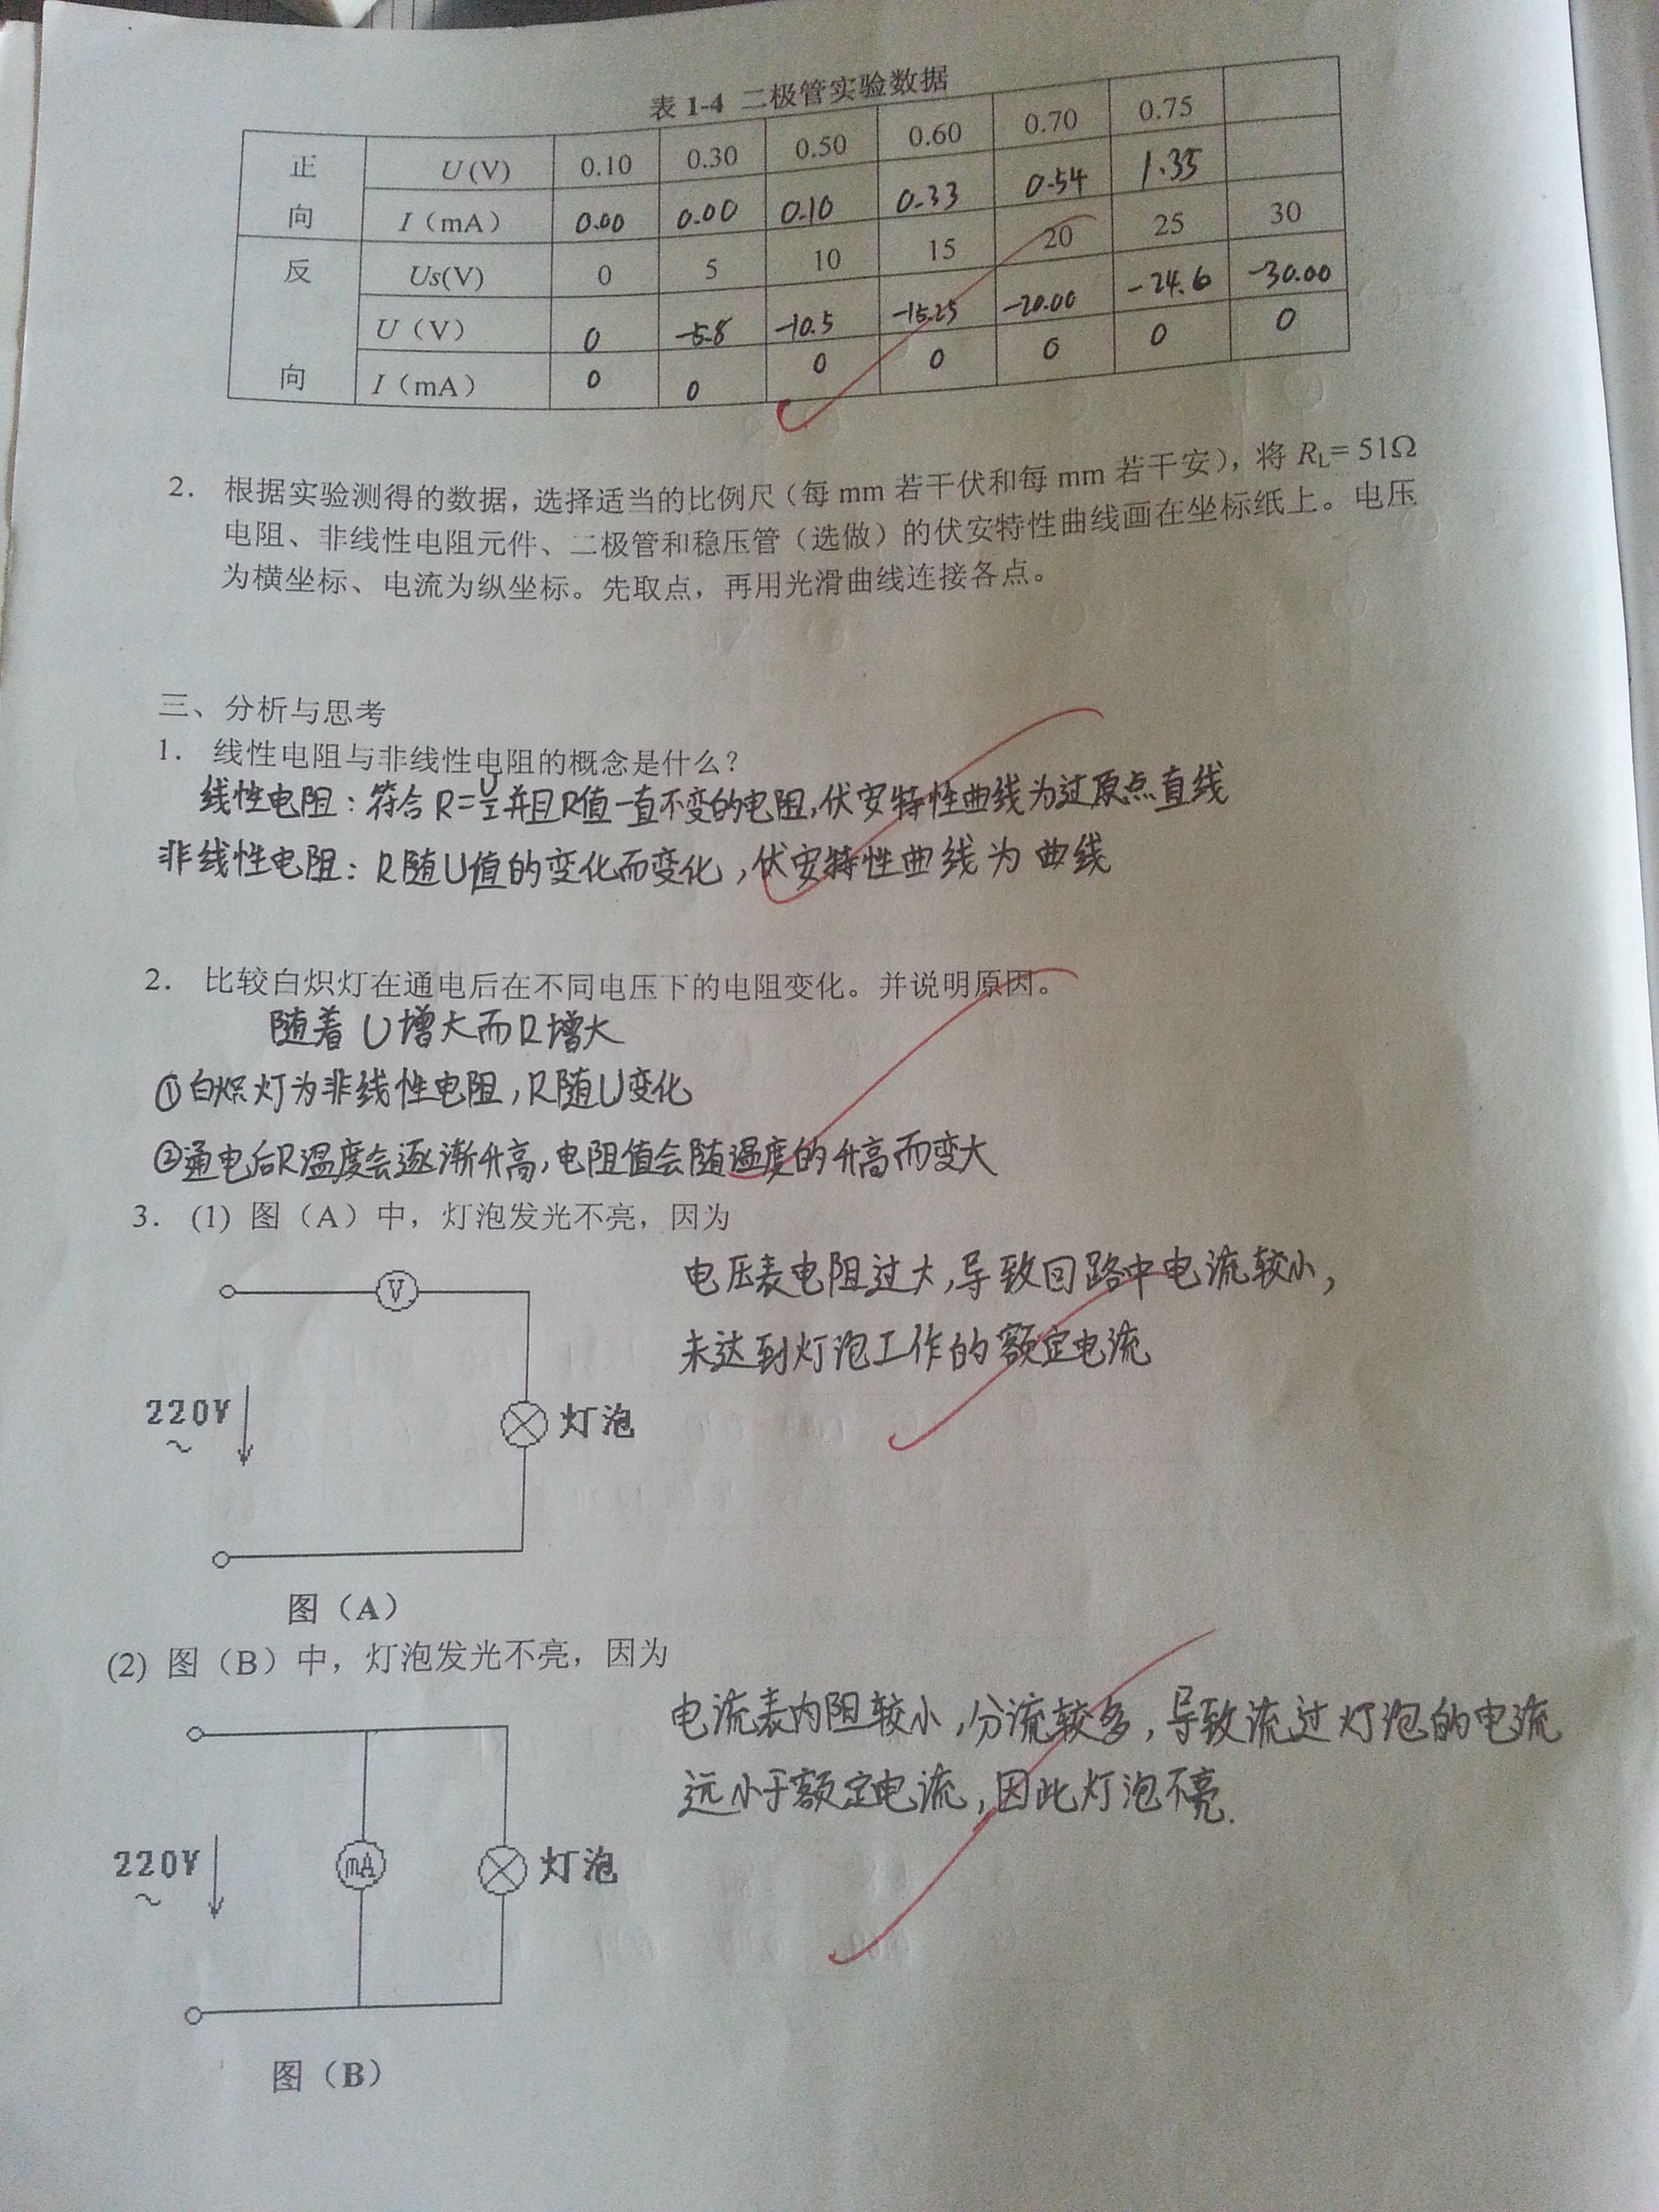 表 1-4 二极管实验数据
正向 U(V) 0.10 0.30 0.50 0.60 0.70 0.75
I（mA） 0.00 0.00 0.10 0.33 0.54 1.35
反向 Us(V) 0 5 10 15 20 25 30
U（V） 0 -5.8 -10.5 -15.25 -20.00 -24.6 -30.00
I（mA） 0 0 0 0 0 0 0
2. 根据实验测得的数据，选择适当的比例尺（每 mm 若干伏和每 mm 若干安），将 RL= 51Ω
电阻、非线性电阻元件、二极管和稳压管（选做）的伏安特性曲线画在坐标纸上。电压
为横坐标、电流为纵坐标。先取点，再用光滑曲线连接各点。
三、分析与思考
1. 线性电阻与非线性电阻的概念是什么？
线性电阻：符合R=U/I并且R值一直不变的电阻,伏安特性曲线为过原点直线
非线性电阻：R随U值的变化而变化，伏安特性曲线为曲线
2. 比较白炽灯在通电后在不同电压下的电阻变化。并说明原因。
随着U增大而R增大
①白炽灯为非线性电阻，R随U变化
②通电后R温度会逐渐升高,电阻值会随温度的升高而变大
3. (1) 图（A）中，灯泡发光不亮，因为
电压表电阻过大,导致回路中电流较小，
未达到灯泡工作的额定电流
V
220V
~
灯泡
图（A）
(2) 图（B）中，灯泡发光不亮，因为
电流表内阻较小，分流较多，导致流过灯泡的电流
远小于额定电流，因此灯泡不亮.
220V
~
mA
灯泡
图（B）